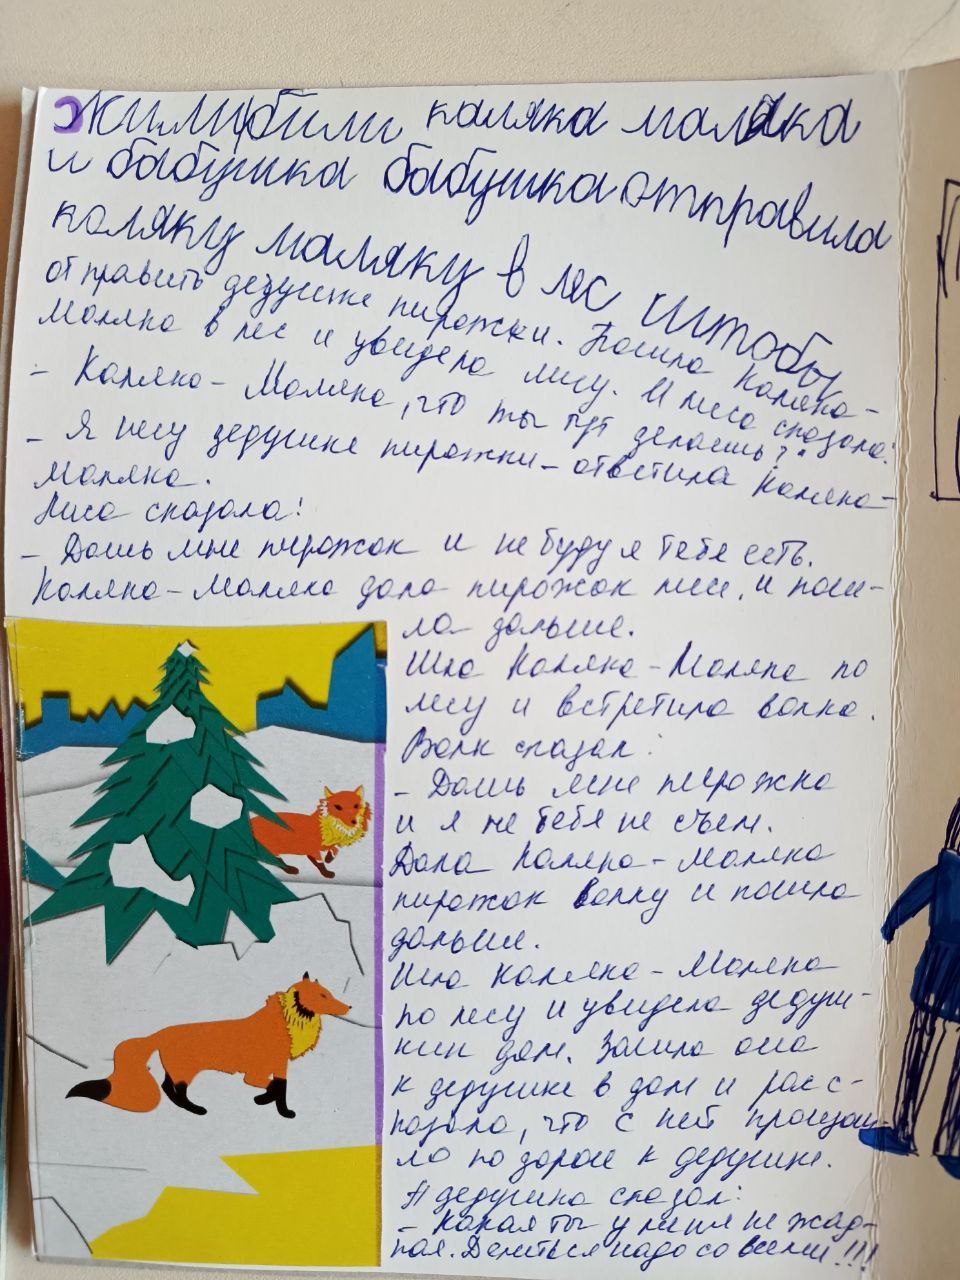 Жили были каляка маляка
и бабушка бабушка отправила
каляку маляку в лес штобы
отправить дедушке пирожки. Пошла Каляка-
Маляка в лес и увидела лису. И лиса сказала:
- Каляка-Маляка, что ты тут делаешь?"
- Я несу дедушке пирожки - ответила Каляка-
Маляка.
Лиса сказала:
- Дашь мне пирожок и не буду я тебя есть.
Каляка-Маляка дала пирожок лисе, и пош-
ла дальше.
Шла Каляка-Маляка по
лесу и встретила волка.
Волк сказал:
- Дашь мне пирожка
и я не тебя не съем.
Дала Каляка-Маляка
пирожок волку и пошла
дальше.
Шла Каляка-Маляка
по лесу и увидела дедуш-
кин дом. Зашла она
к дедушке в дом и расс-
казала, что с ней произош-
ло по дороге к дедушке.
А дедушка сказал:
- Какая ты у меня не жад-
ная. Делиться надо со всеми!!!